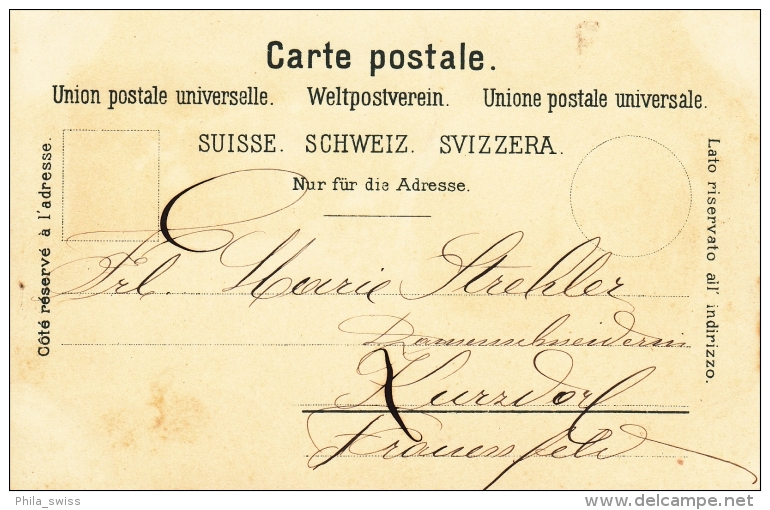 Carte postale.
Union postale universelle. Weltpostverein. Unione postale universale.
SUISSE. SCHWEIZ. SVIZZERA.
Nur für die Adresse.
Côté réservé à l'adresse.
Lato riservato all' indirizzo.
Frl. Marie Strehler
Damenschneiderin
Kurzdorf
Frauenfeld
Phila_swiss
delcampe.net